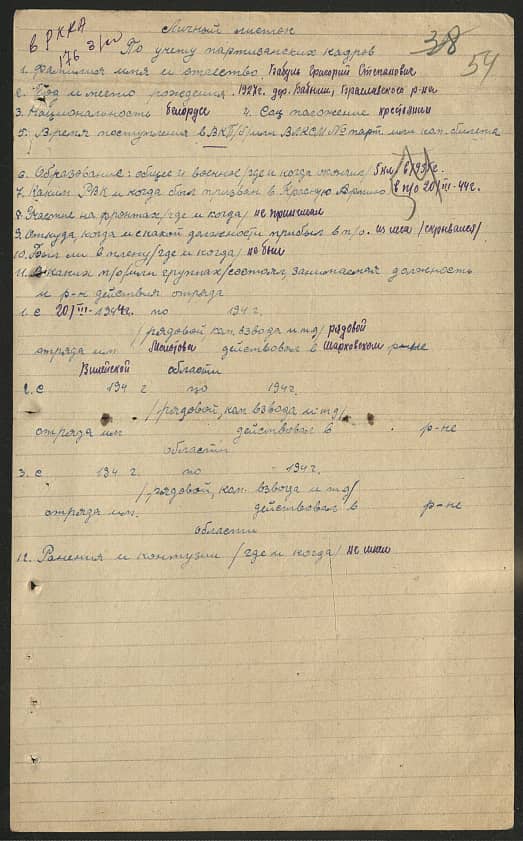 Личный листок
в РККА
176 3/VII
38
54
По учету партизанских кадров
1. Фамилия имя и отчество Бабуль Григорий Степанович
2. Год и место рождения. 1927г. дер. р-на
3. Национальность белорус 4. Соц положение крестьянин
5. Время поступления в ВКП/б/ или ВЛКСМ № парт. или кан. билета
6. Образование: общее и военное /где и когда окончил/ 5кл в 193 г.
7. Каким РВК и когда был призван в Красную Армию в п/о 20/III-44г.
8. Участие на фронтах /где и когда/ не принимал
9. Откуда, когда и с какой должности прибыл в п/о. из леса /скрывался/
10. Был ли в плену /где и когда/ не был
11. В каких п/о/или группах/состоял, занимаемая должность
и р-н действия отряда
1. с 20/III-1944г. по 194 г.
/рядовой, ком. взвода и тд/ рядовой
отряда им Молотова действовал в Шарковском р-не
Вилейской области
2. с 194 г по 194г.
/рядовой, ком взвода и тд/
отряда им действовал в р-не
области
3. с 194 г. по 194г.
/рядовой, ком. взвода и тд/
отряда им. действовал в р-не
области
12. Ранения и контузии /где и когда/ не имел